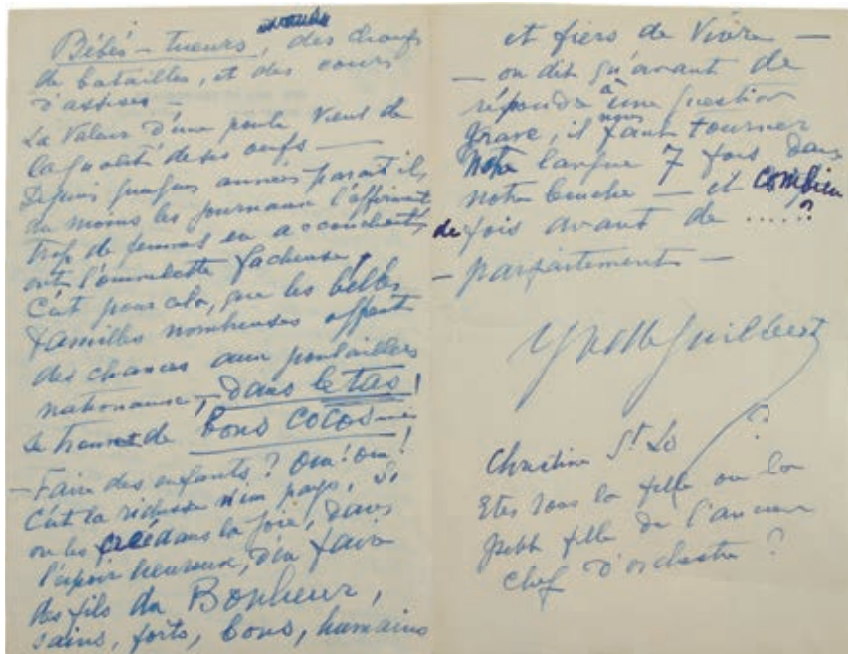 Bébés-tueurs, des champs
de batailles, et des cours
d'assises —
La Valeur d'une poule Vient de
la qualité de ses oeufs —
Depuis quelques années parait il,
du moins les journaux l'affirment
trop de femmes en accouchent,
ont l'omelette facheuse,
C'est pour cela, que les belles
familles nombreuses offrent
des chances aux poulaillers
nationaux, dans le tas,
se trouvent de bons cocos —
— Faire des enfants? Oui! Oui!
C'est la richesse d'un pays, Si
on les crée dans la joie, dans
l'espoir heureux, d'en faire
des fils du Bonheur,
sains, forts, bons, humains
et fiers de Vivre —
— on dit qu'avant de
répondre à une question
grave, il nous faut tourner
Notre langue 7 fois dans
notre bouche — et combien
de fois avant de .....?
— parfaitement —
Yvette Guilbert
Christine St Lo ?
Etes vous la fille ou la
petite fille de l'ancien
chef d'orchestre ?